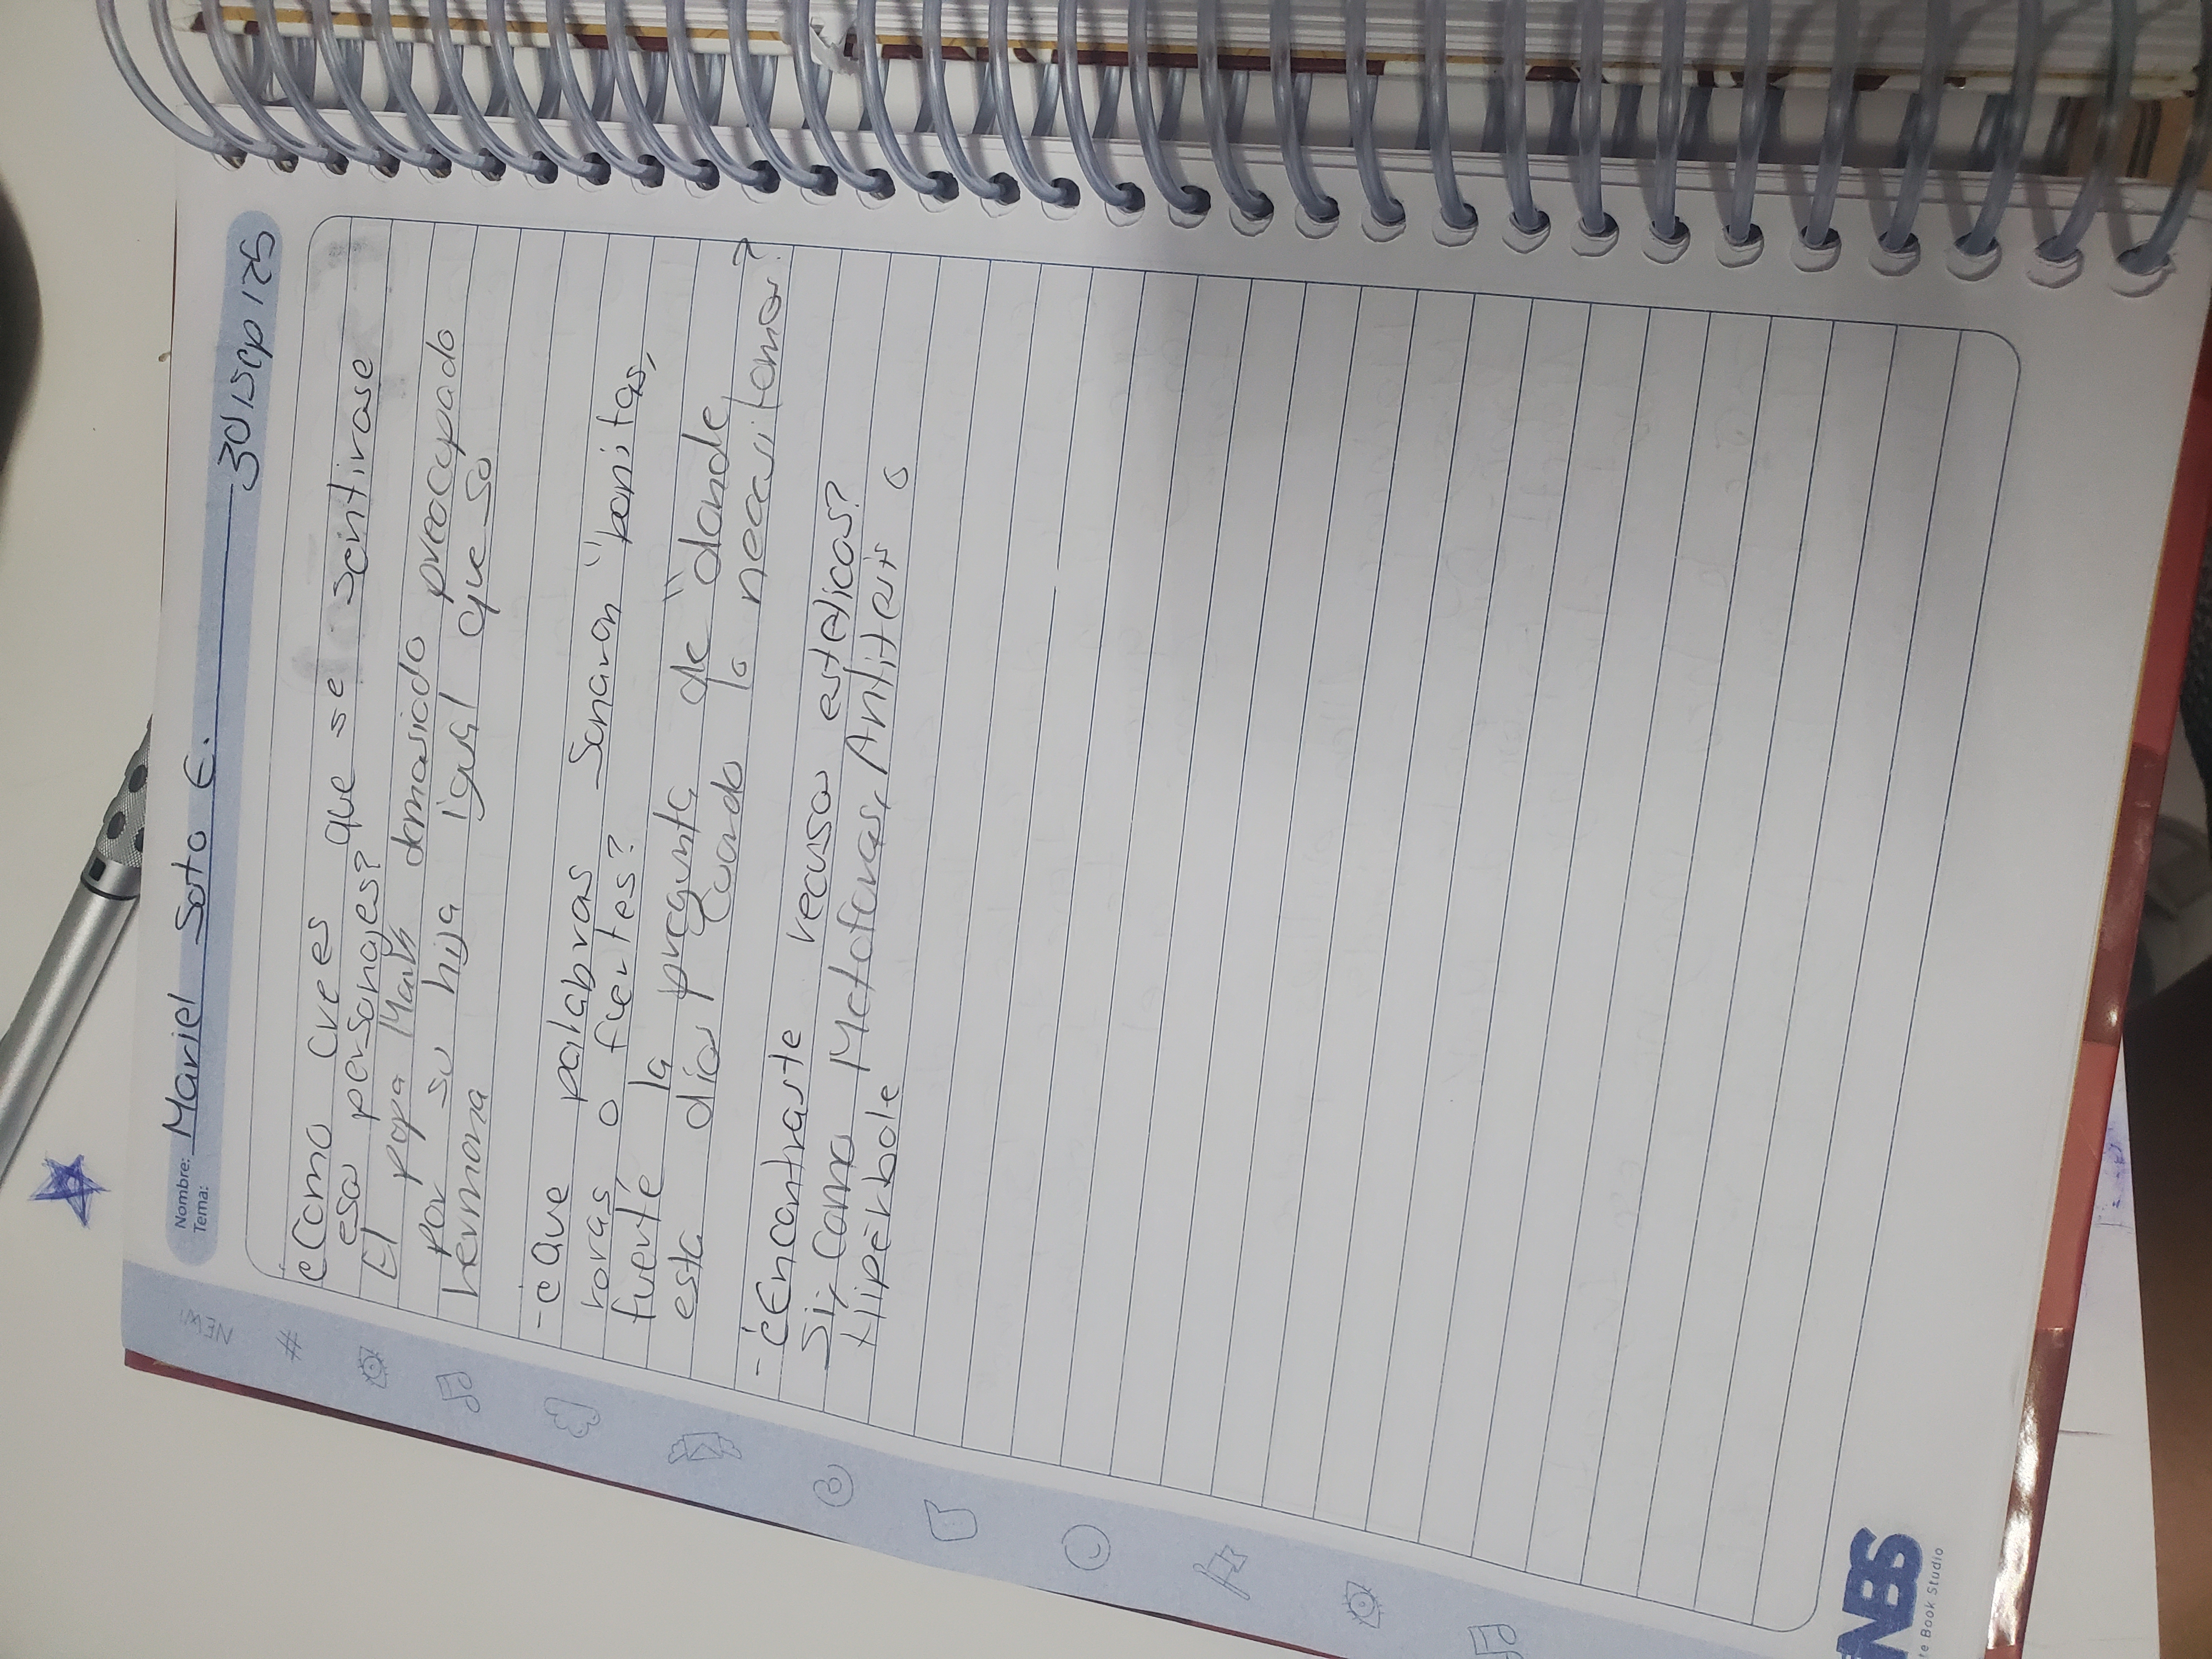 Nombre: Mariel Soto E. 30/Sep/25
Tema:
¿Como crees que se sentirase
esos personajes?
El papa Mark demasiado preocupado
por su hija igual que so
hermana
-¿Que palabras Sonaron "bonitas,
raras o fuertes?
fuerte la pregunta de "donde
esta dios cuando lo necesitemos?
-¿Encontraste recusos esteticos?
Si, como Metaforas, Antitesis o
Hiperbole
NEW!
#
NBS
te Book Studio